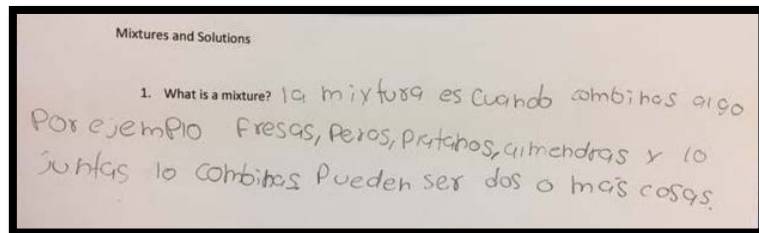 Mixtures and Solutions
1. What is a mixture? la mixtura es cuando combinas algo
Por ejemplo fresas, peras, platanos, almendras y lo
juntas lo combinas Pueden ser dos o más cosas.